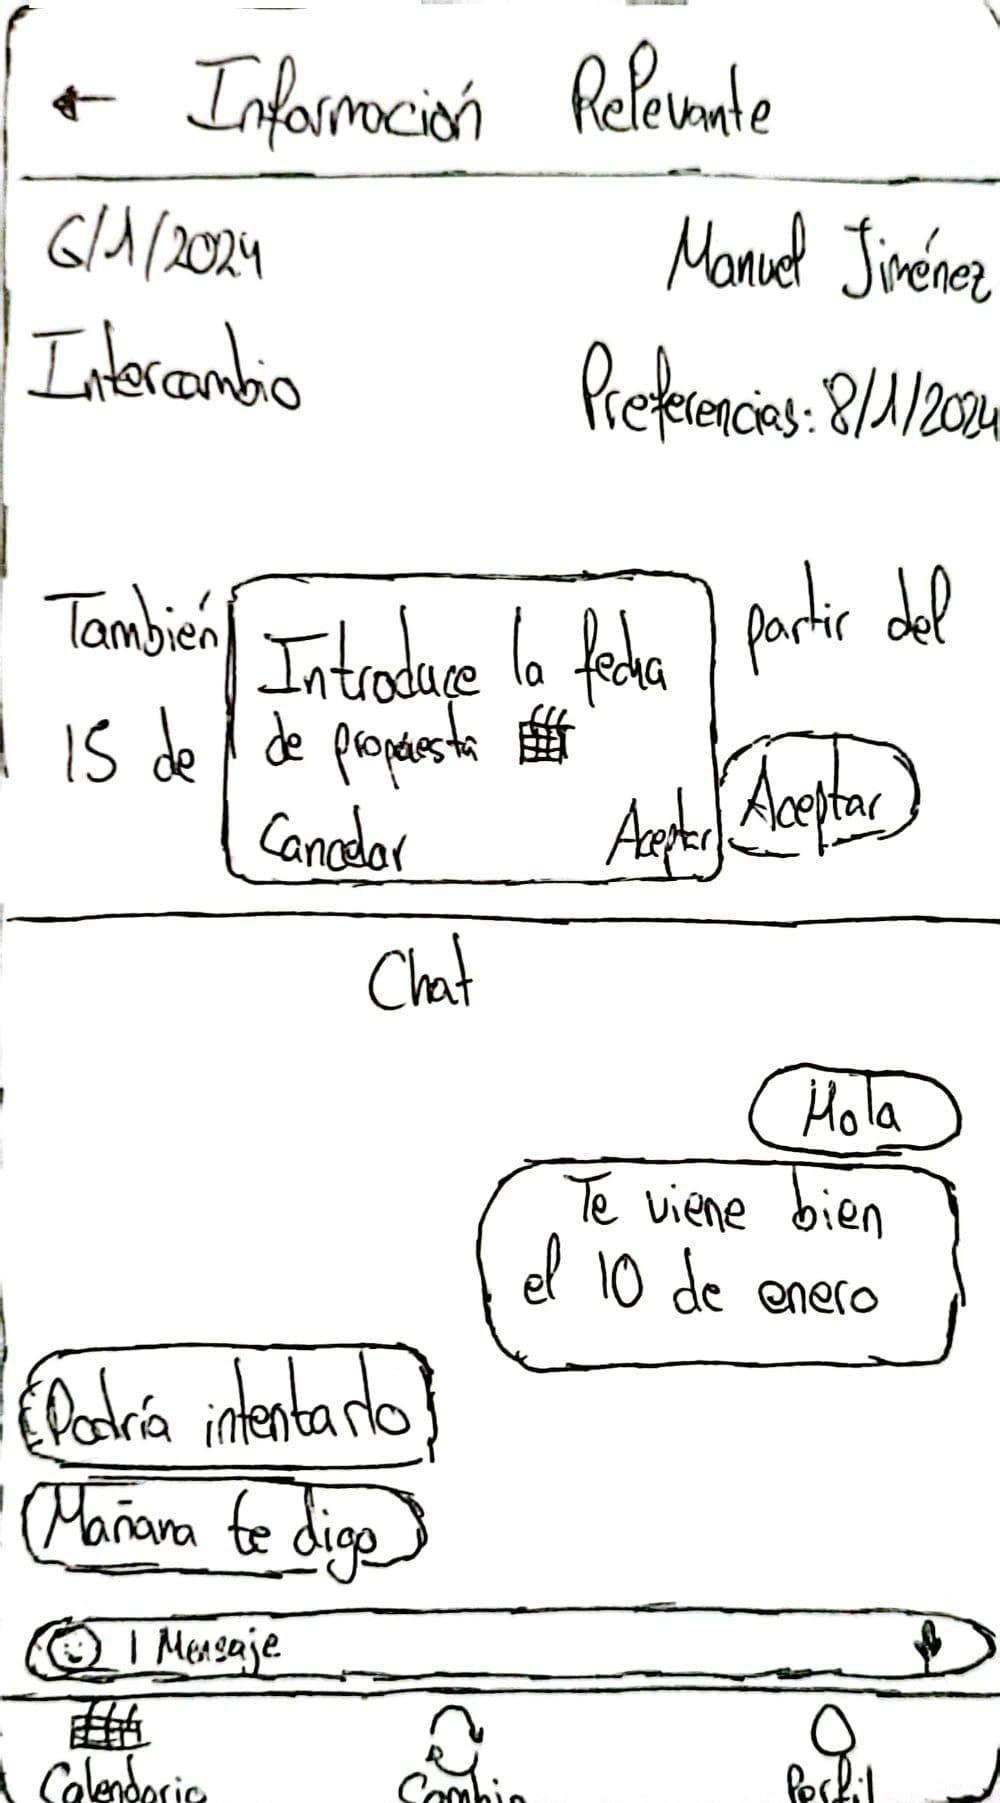 ← Información Relevante
6/1/2024 Manuel Jiménez
Intercambio Preferencias: 8/1/2024
También partir del
15 de
Introduce la fecha
de propuesta
Cancelar Aceptar
Aceptar
Chat
Hola
Te viene bien
el 10 de enero
Podría intentarlo
Mañana te digo
| Mensaje
Calendario Cambio Perfil